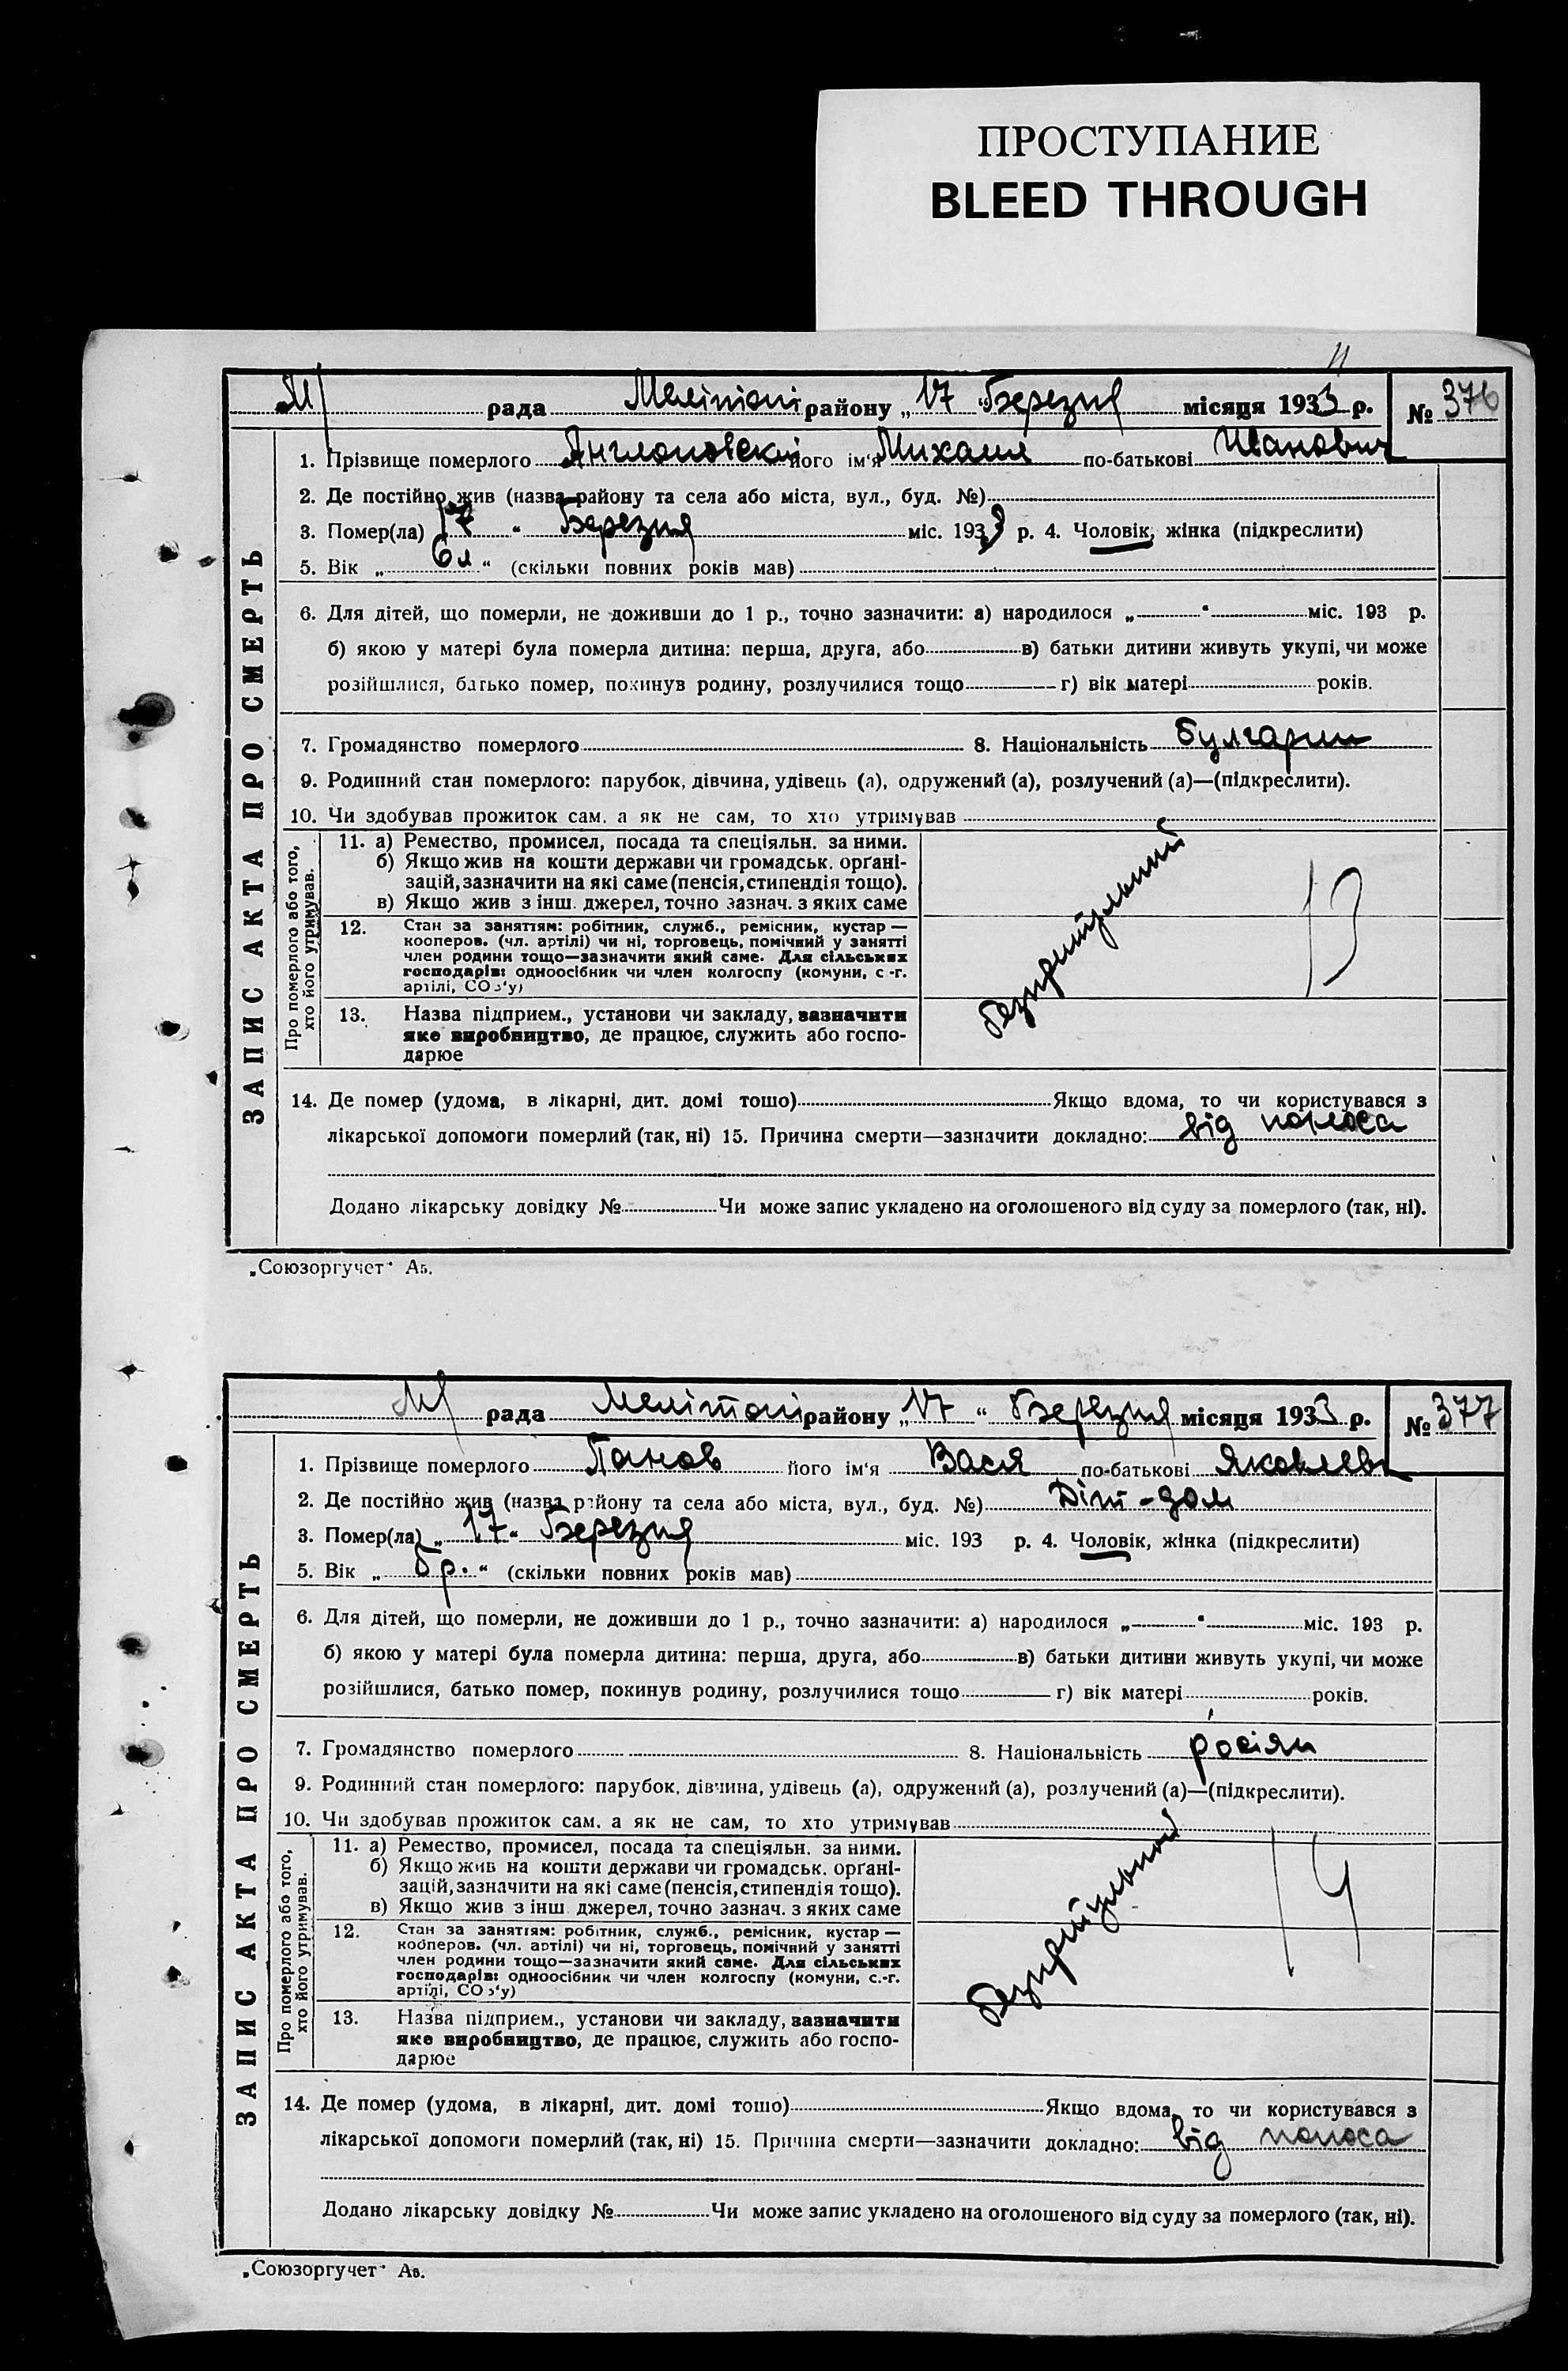 ПРОСТУПАНИЕ
BLEED THROUGH
М/ рада Мелітопі району „17" Березня місяця 1933 р. № 376
1. Прізвище померлого його ім'я Михаил по-батькові Иванович
2. Де постійно жив (назва району та села або міста, вул., буд. №)
3. Помер(ла) 17 " Березня міс. 1933 р. 4. Чоловік, жінка (підкреслити)
5. Вік „ 6 л " (скільки повних років мав)
6. Для дітей, що померли, не доживши до 1 р., точно зазначити: а) народилося „ " міс. 193 р.
б) якою у матері була померла дитина: перша, друга, або в) батьки дитини живуть укупі, чи може
розійшлися, батько помер, покинув родину, розлучилися тощо г) вік матері років.
7. Громадянство померлого 8. Національність булгарин
9. Родинний стан померлого: парубок, дівчина, удівець (а), одружений (а), розлучений (а)—(підкреслити).
10. Чи здобував прожиток сам, а як не сам, то хто утримував
11. а) Ремество, промисел, посада та спеціяльн. за ними.
б) Якщо жив на кошти держави чи громадськ. орґані-
зацій, зазначити на які саме (пенсія, стипендія тощо).
в) Якщо жив з інш. джерел, точно зазнач. з яких саме
12. Стан за заняттям: робітник, служб., ремісник, кустар —
кооперов. (чл. артілі) чи ні, торговець, помічний у занятті
член родини тощо—зазначити який саме. Для сільських
господарів: одноосібник чи член колгоспу (комуни, с.-г.
артілі, СОЗ'у)
13. Назва підприєм., установи чи закладу, зазначити
яке виробництво, де працює, служить або госпо-
дарює
Про померлого або того,
хто його утримував.
безпритульний
13
14. Де помер (удома, в лікарні, дит. домі тощо) Якщо вдома, то чи користувався з
лікарської допомоги померлий (так, ні) 15. Причина смерти—зазначити докладно: від поноса
Додано лікарську довідку № Чи може запис укладено на оголошеного від суду за померлого (так, ні).
ЗАПИС АКТА ПРО СМЕРТЬ
„Союзоргучет" Ав.
М/ рада Мелітопі району „17" Березня місяця 1933 р. № 377
1. Прізвище померлого Панов його ім'я Вася по-батькові Яковлев
2. Де постійно жив (назва району та села або міста, вул., буд. №) Діт-дом
3. Помер(ла) „17" Березня міс. 193 р. 4. Чоловік, жінка (підкреслити)
5. Вік „ 5 р. " (скільки повних років мав)
6. Для дітей, що померли, не доживши до 1 р., точно зазначити: а) народилося „ " міс. 193 р.
б) якою у матері була померла дитина: перша, друга, або в) батьки дитини живуть укупі, чи може
розійшлися, батько помер, покинув родину, розлучилися тощо г) вік матері років.
7. Громадянство померлого 8. Національність росіян
9. Родинний стан померлого: парубок, дівчина, удівець (а), одружений (а), розлучений (а)—(підкреслити).
10. Чи здобував прожиток сам, а як не сам, то хто утримував
11. а) Ремество, промисел, посада та спеціяльн. за ними.
б) Якщо жив на кошти держави чи громадськ. орґані-
зацій, зазначити на які саме (пенсія, стипендія тощо).
в) Якщо жив з інш. джерел, точно зазнач. з яких саме
12. Стан за заняттям: робітник, служб., ремісник, кустар —
кооперов. (чл. артілі) чи ні, торговець, помічний у занятті
член родини тощо—зазначити який саме. Для сільських
господарів: одноосібник чи член колгоспу (комуни, с.-г.
артілі, СОЗ'у)
13. Назва підприєм., установи чи закладу, зазначити
яке виробництво, де працює, служить або госпо-
дарює
Про померлого або того,
хто його утримував.
безпритульной
14
14. Де помер (удома, в лікарні, дит. домі тощо) Якщо вдома, то чи користувався з
лікарської допомоги померлий (так, ні) 15. Причина смерти—зазначити докладно: від поноса
Додано лікарську довідку № Чи може запис укладено на оголошеного від суду за померлого (так, ні).
ЗАПИС АКТА ПРО СМЕРТЬ
„Союзоргучет" Ав.